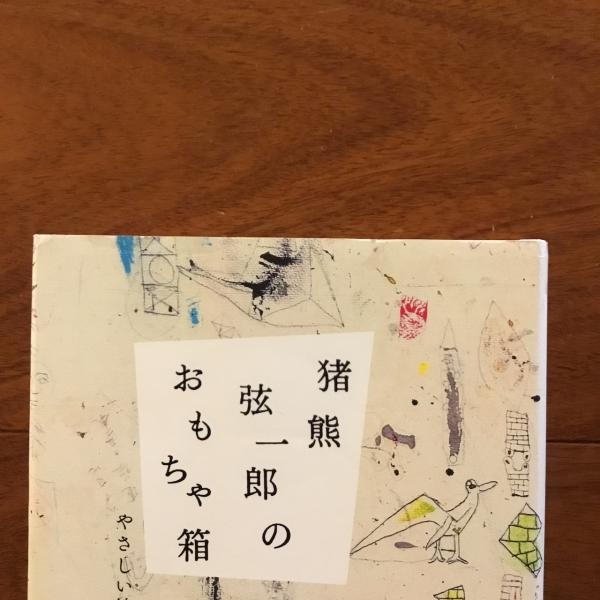 猪熊
弦一郎の
おもちゃ箱
やさしい